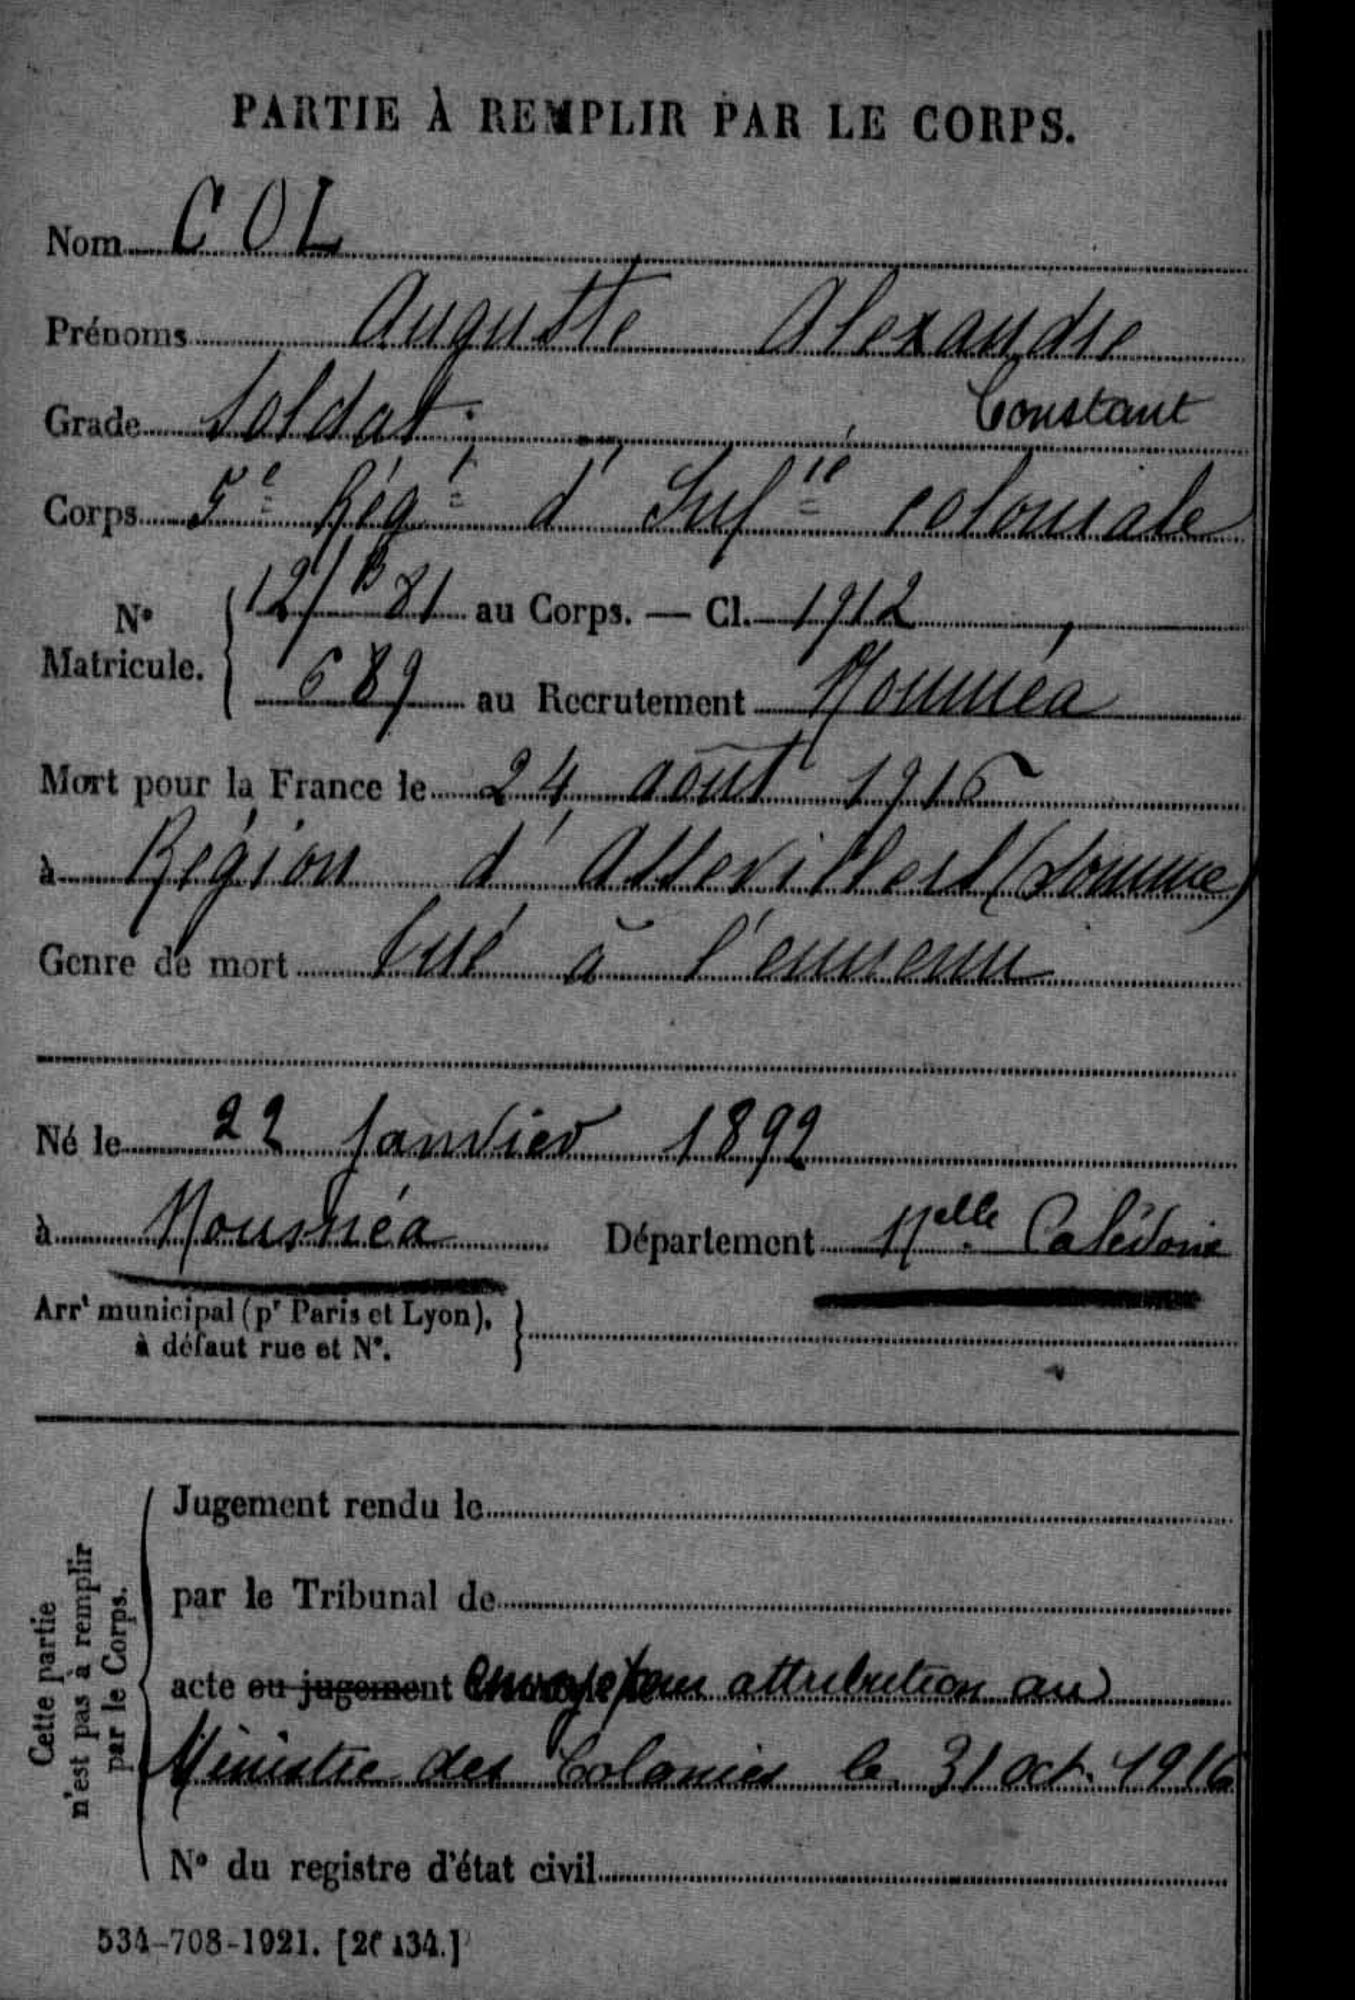 PARTIE À REMPLIR PAR LE CORPS.
Nom COL
Prénoms Auguste Alexandre
Constant
Grade Soldat.
Corps 5e Régt d'Infie coloniale
No Matricule. { 12/B 81 au Corps. — Cl. 1912
689 au Recrutement Nouméa
Mort pour la France le 24 août 1916
à Région d'Assevillers (Somme)
Genre de mort tué à l'ennemi
Né le 22 Janvier 1892
à Nouméa Département Nelle Calédonie
Arrt municipal (pr Paris et Lyon),
à défaut rue et No.
Cette partie
n'est pas à remplir
par le Corps.
Jugement rendu le
par le Tribunal de
acte ou jugement pour attribution au
Ministre des Colonies le 31 oct. 1916
No du registre d'état civil
534-708-1921. [26134.]